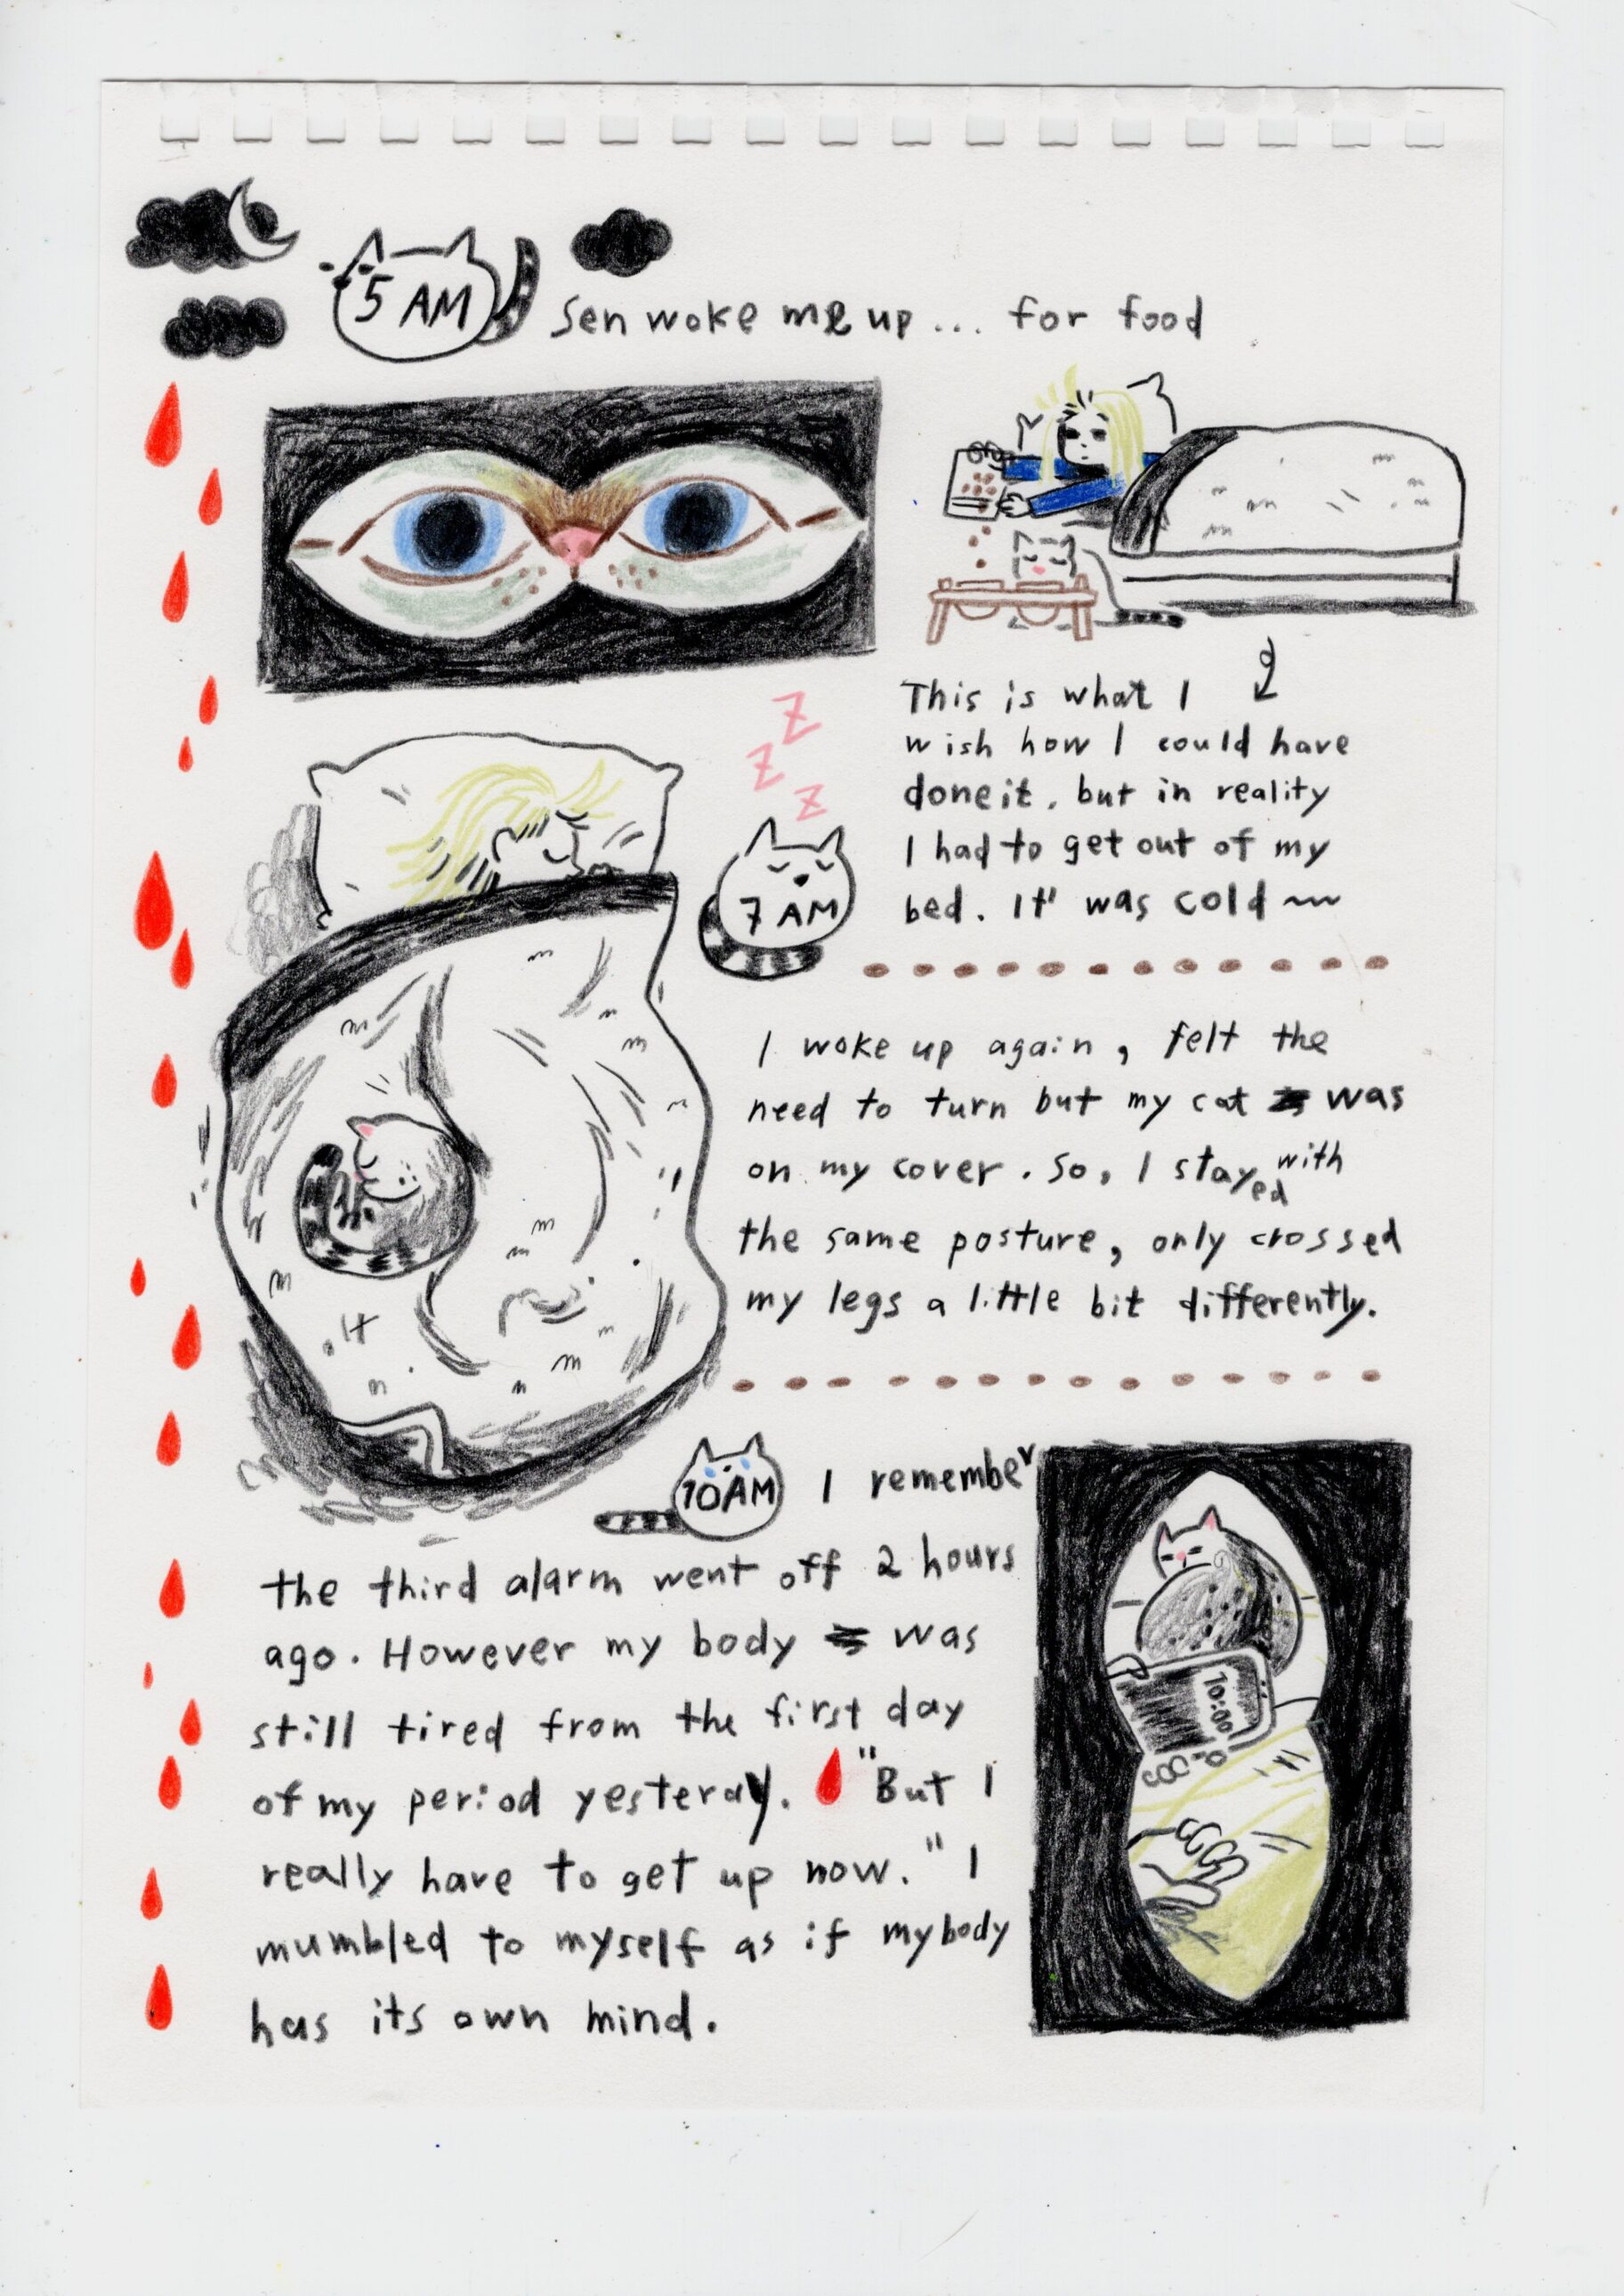 5 AM Sen woke me up... for food
This is what I
wish how I could have
done it. but in reality
I had to get out of my
bed. It was cold ~
Z
Z
Z
7 AM
I woke up again, felt the
need to turn but my cat was
on my cover. So, I stayed with
the same posture, only crossed
my legs a little bit differently.
10AM I remember
the third alarm went off 2 hours
ago. However my body was
still tired from the first day
of my period yesteray. "But I
really have to get up now." I
mumbled to myself as if my body
has its own mind.
10:00